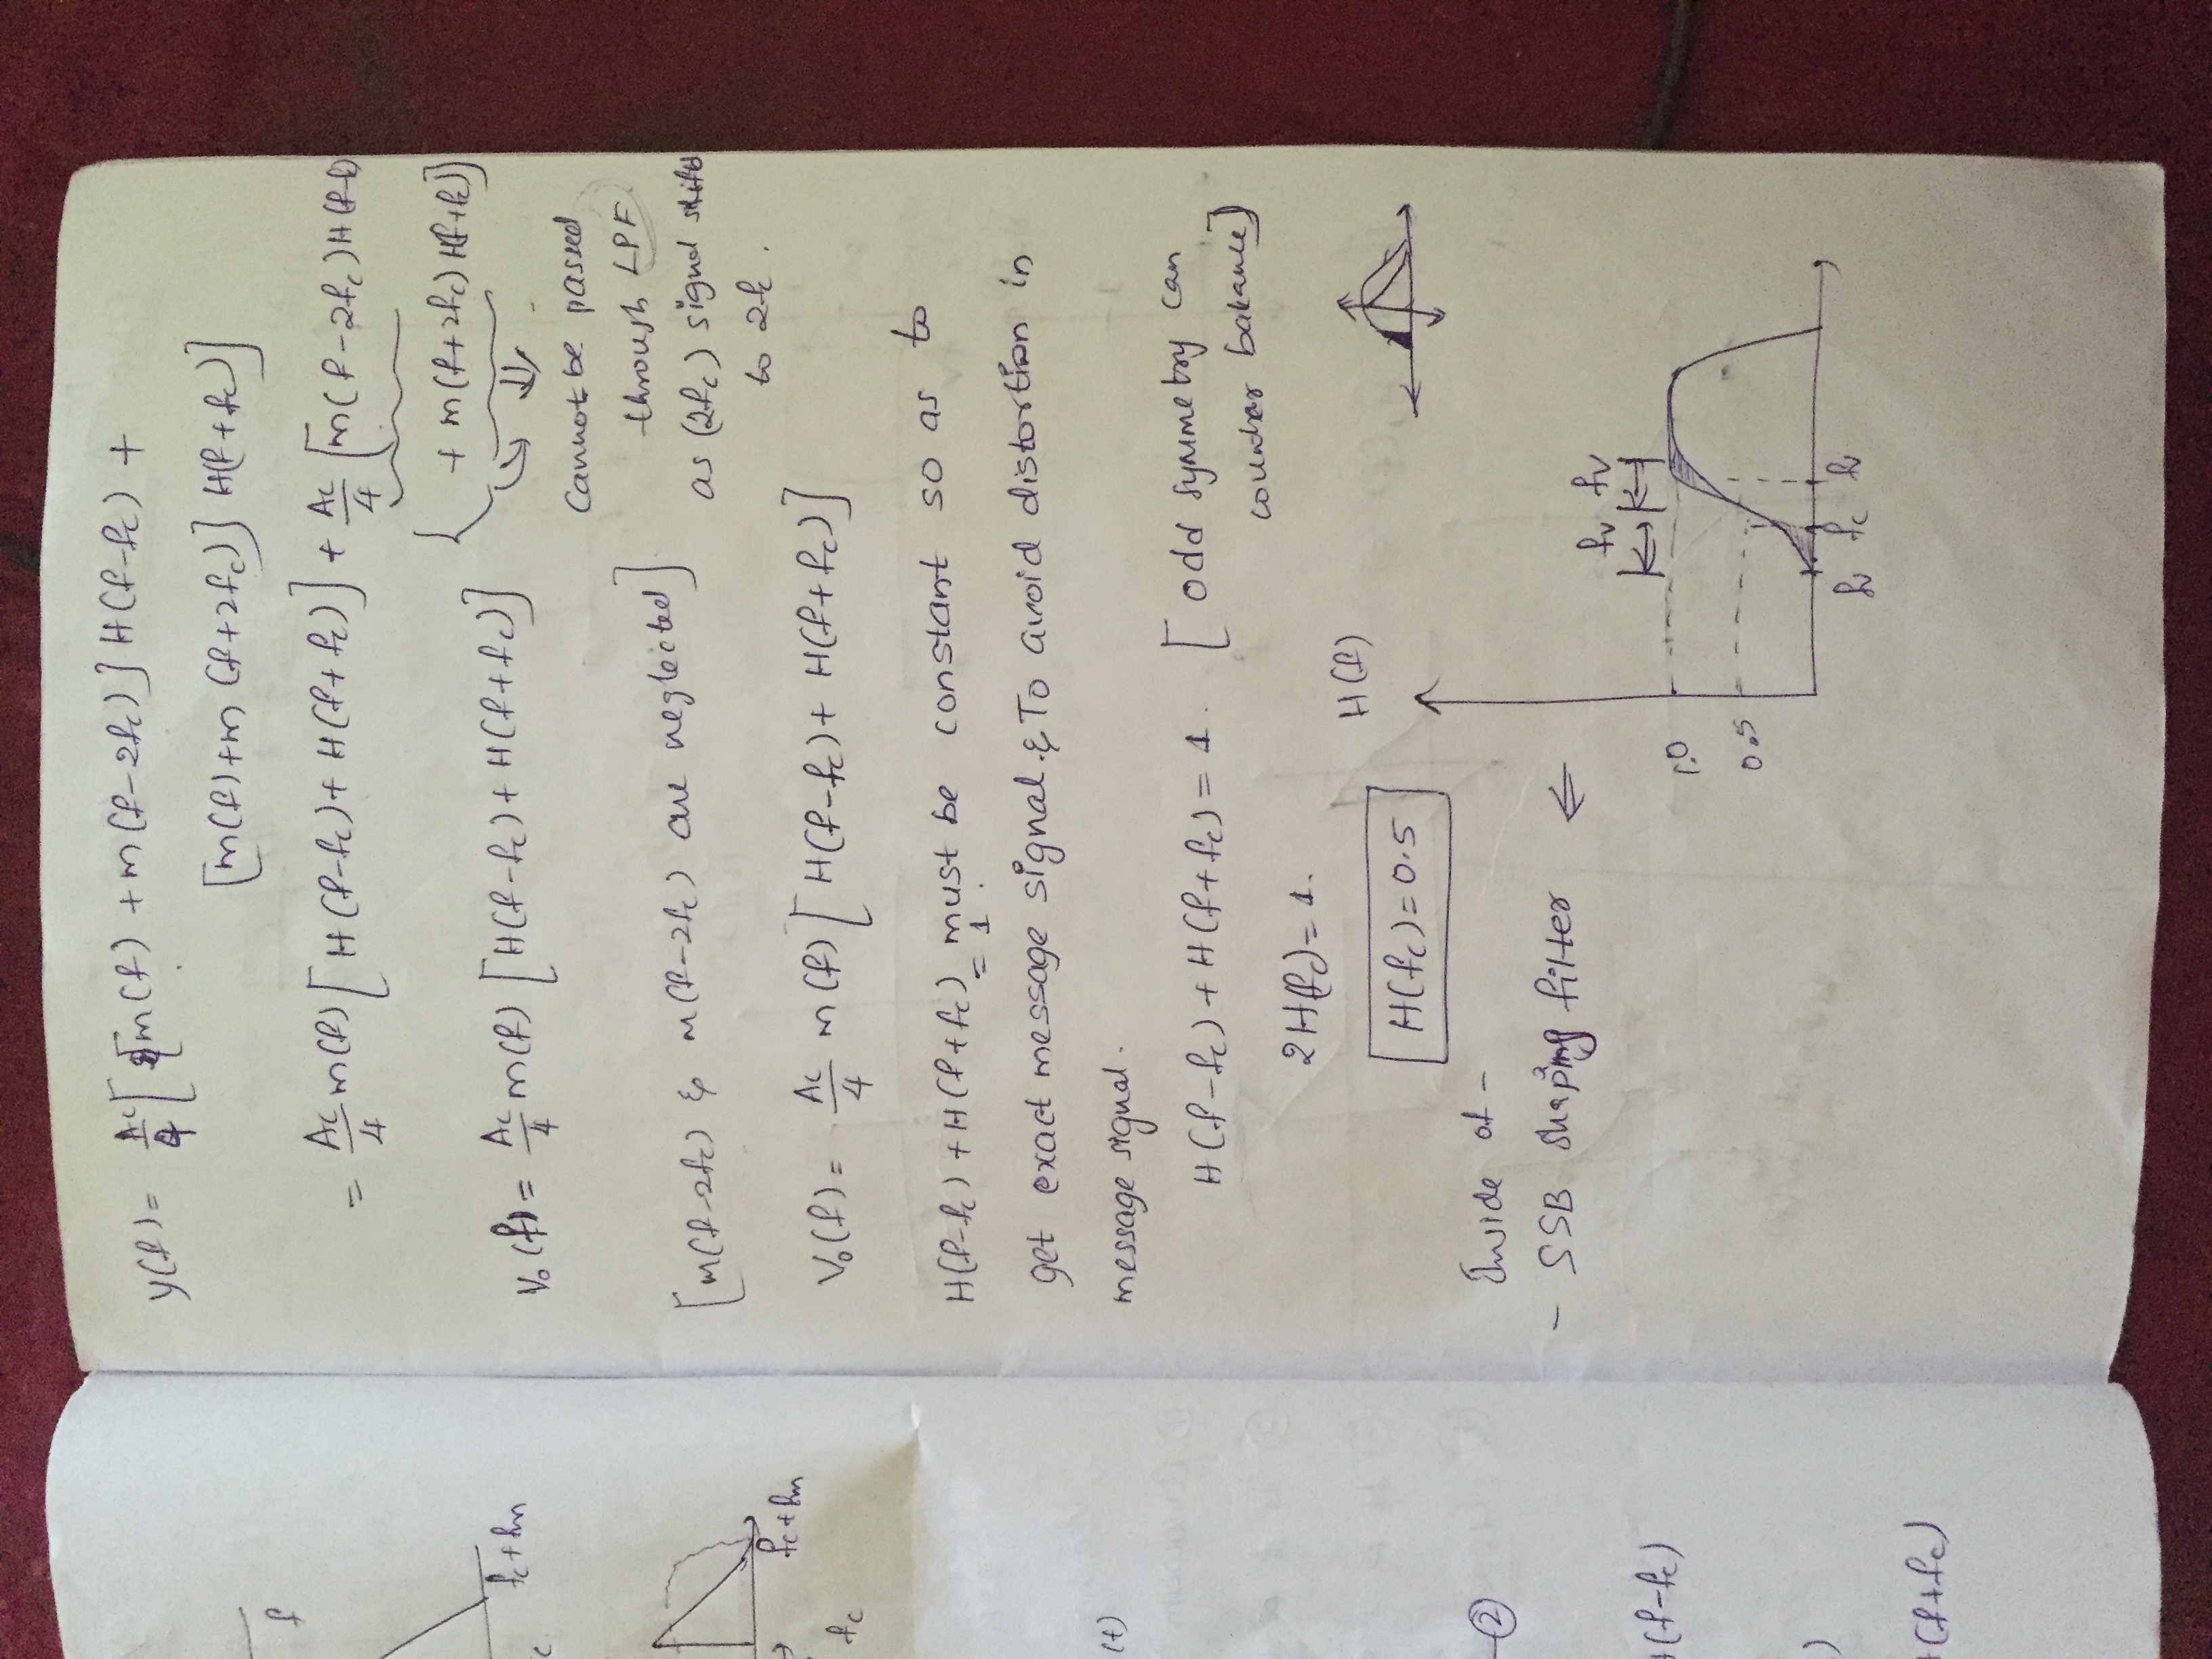 f
fc+fm
c
fc+fm
fc
(t)
-②
H(f-fc)
)
H(f+fc)
y(f) = Ac/4 [ [m(f) + m(f-2fc)] H(f-fc) +
[m(f)+m (f+2fc)] H(f+fc)]
= Ac/4 m(f) [H(f-fc)+ H(f+fc)] + Ac/4 [m(f-2fc)H(f-fc)
+ m(f+2fc) H(f+fc)]
Vo(f) = Ac/4 m(f) [H(f-fc)+ H(f+fc)]
Cannot be passed
through LPF
as (2fc) signal shifts
to 2fc.
[m(f-2fc) & m(f-2fc) are neglected]
Vo(f) = Ac/4 m(f) [H(f-fc)+ H(f+fc)]
H(f-fc) + H(f+fc) must be constant so as to
= 1.
get exact message signal. & To avoid distortion in
message signal.
H(f-fc) + H(f+fc) = 1. [odd symmetry can
counter balance]
2H(fc) = 1.
H(fc)=0.5
H(f)
Inside of -
- SSB shaping filter ⇐
fv fv
1.0
0.5
fv fc fv